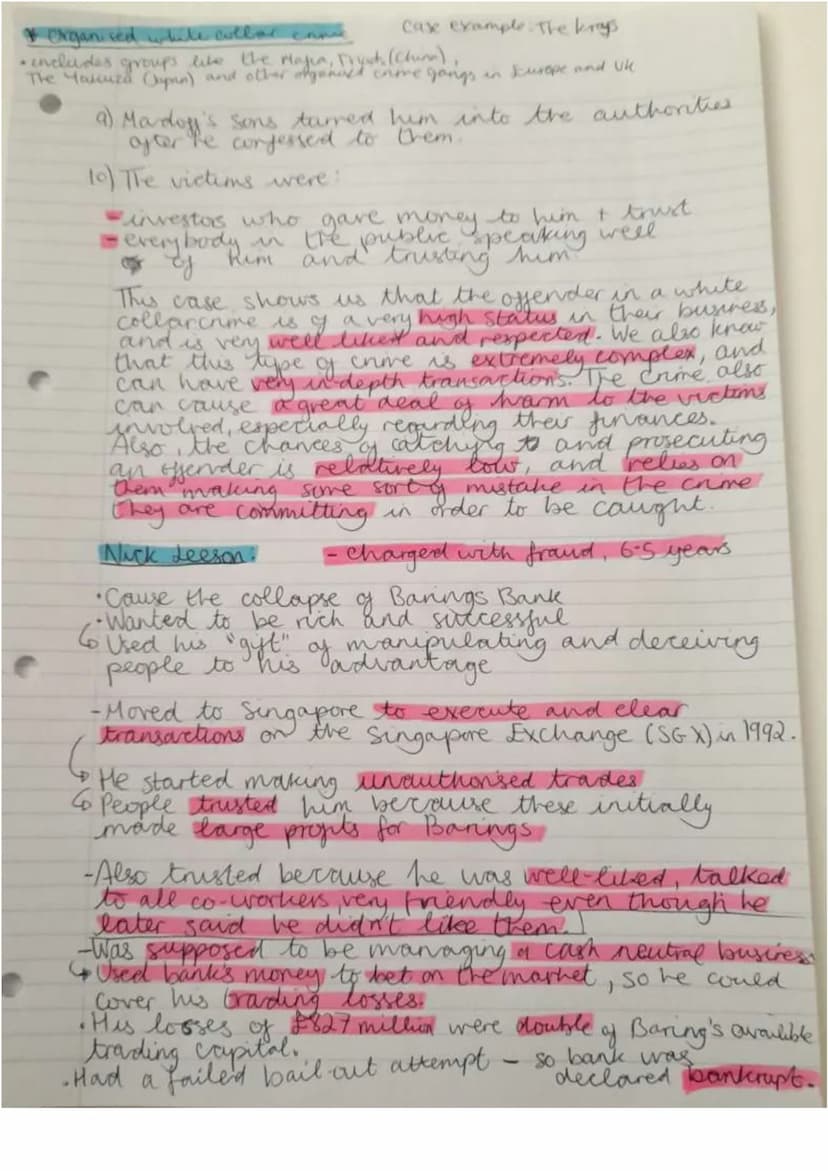 * Organised white collar crime
case example: The Krays
• includes groups like the Mafia, Triads (China),
The Yakuza (Japan) and other organised crime gangs in Europe and UK
9) Madoff's sons turned him into the authorities
after he confessed to them.
10) The victims were:
- investors who gave money to him + trust
- everybody in the public speaking well
of him and trusting him.
This case shows us that the offender in a white
collar crime is of a very high status in their business,
and is very well liked and respected. We also know
that this type of crime is extremely complex, and
can have very in-depth transactions. The crime also
can cause a great deal of harm to the victims
involved, especially regarding their finances.
Also, the chances of catching and prosecuting
an offender is relatively low, and relies on
them making some sort of mistake in the crime
they are committing in order to be caught.
Nick Leeson: - charged with fraud, 6.5 years
• Cause the collapse of Barings Bank
• Wanted to be rich and successful
↳ Used his "gift" of manipulating and deceiving
people to his advantage
- Moved to Singapore to execute and clear
transactions on the Singapore Exchange (SGX) in 1992.
↳ He started making unauthorised trades
↳ People trusted him because these initially
made large profits for Barings
- Also trusted because he was well-liked, talked
to all co-workers, very friendly even though he
later said he didn't like them.
- Was supposed to be managing a cash neutral business
↳ Used bank's money to bet on the market, so he could
cover his trading losses.
• His losses of £827 million were double of Baring's
trading capital.
• Had a failed bail-out attempt - so bank was
declared bankrupt.